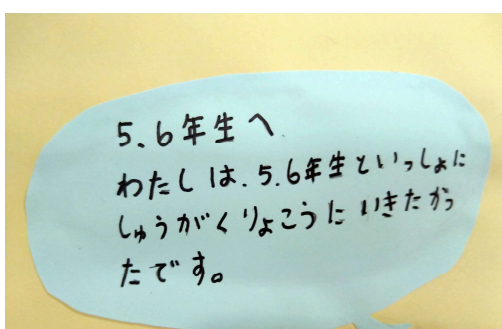 5、6年生へ
わたしは、5、6年生といっしょに
しゅうがくりょこうにいきたかっ
たです。